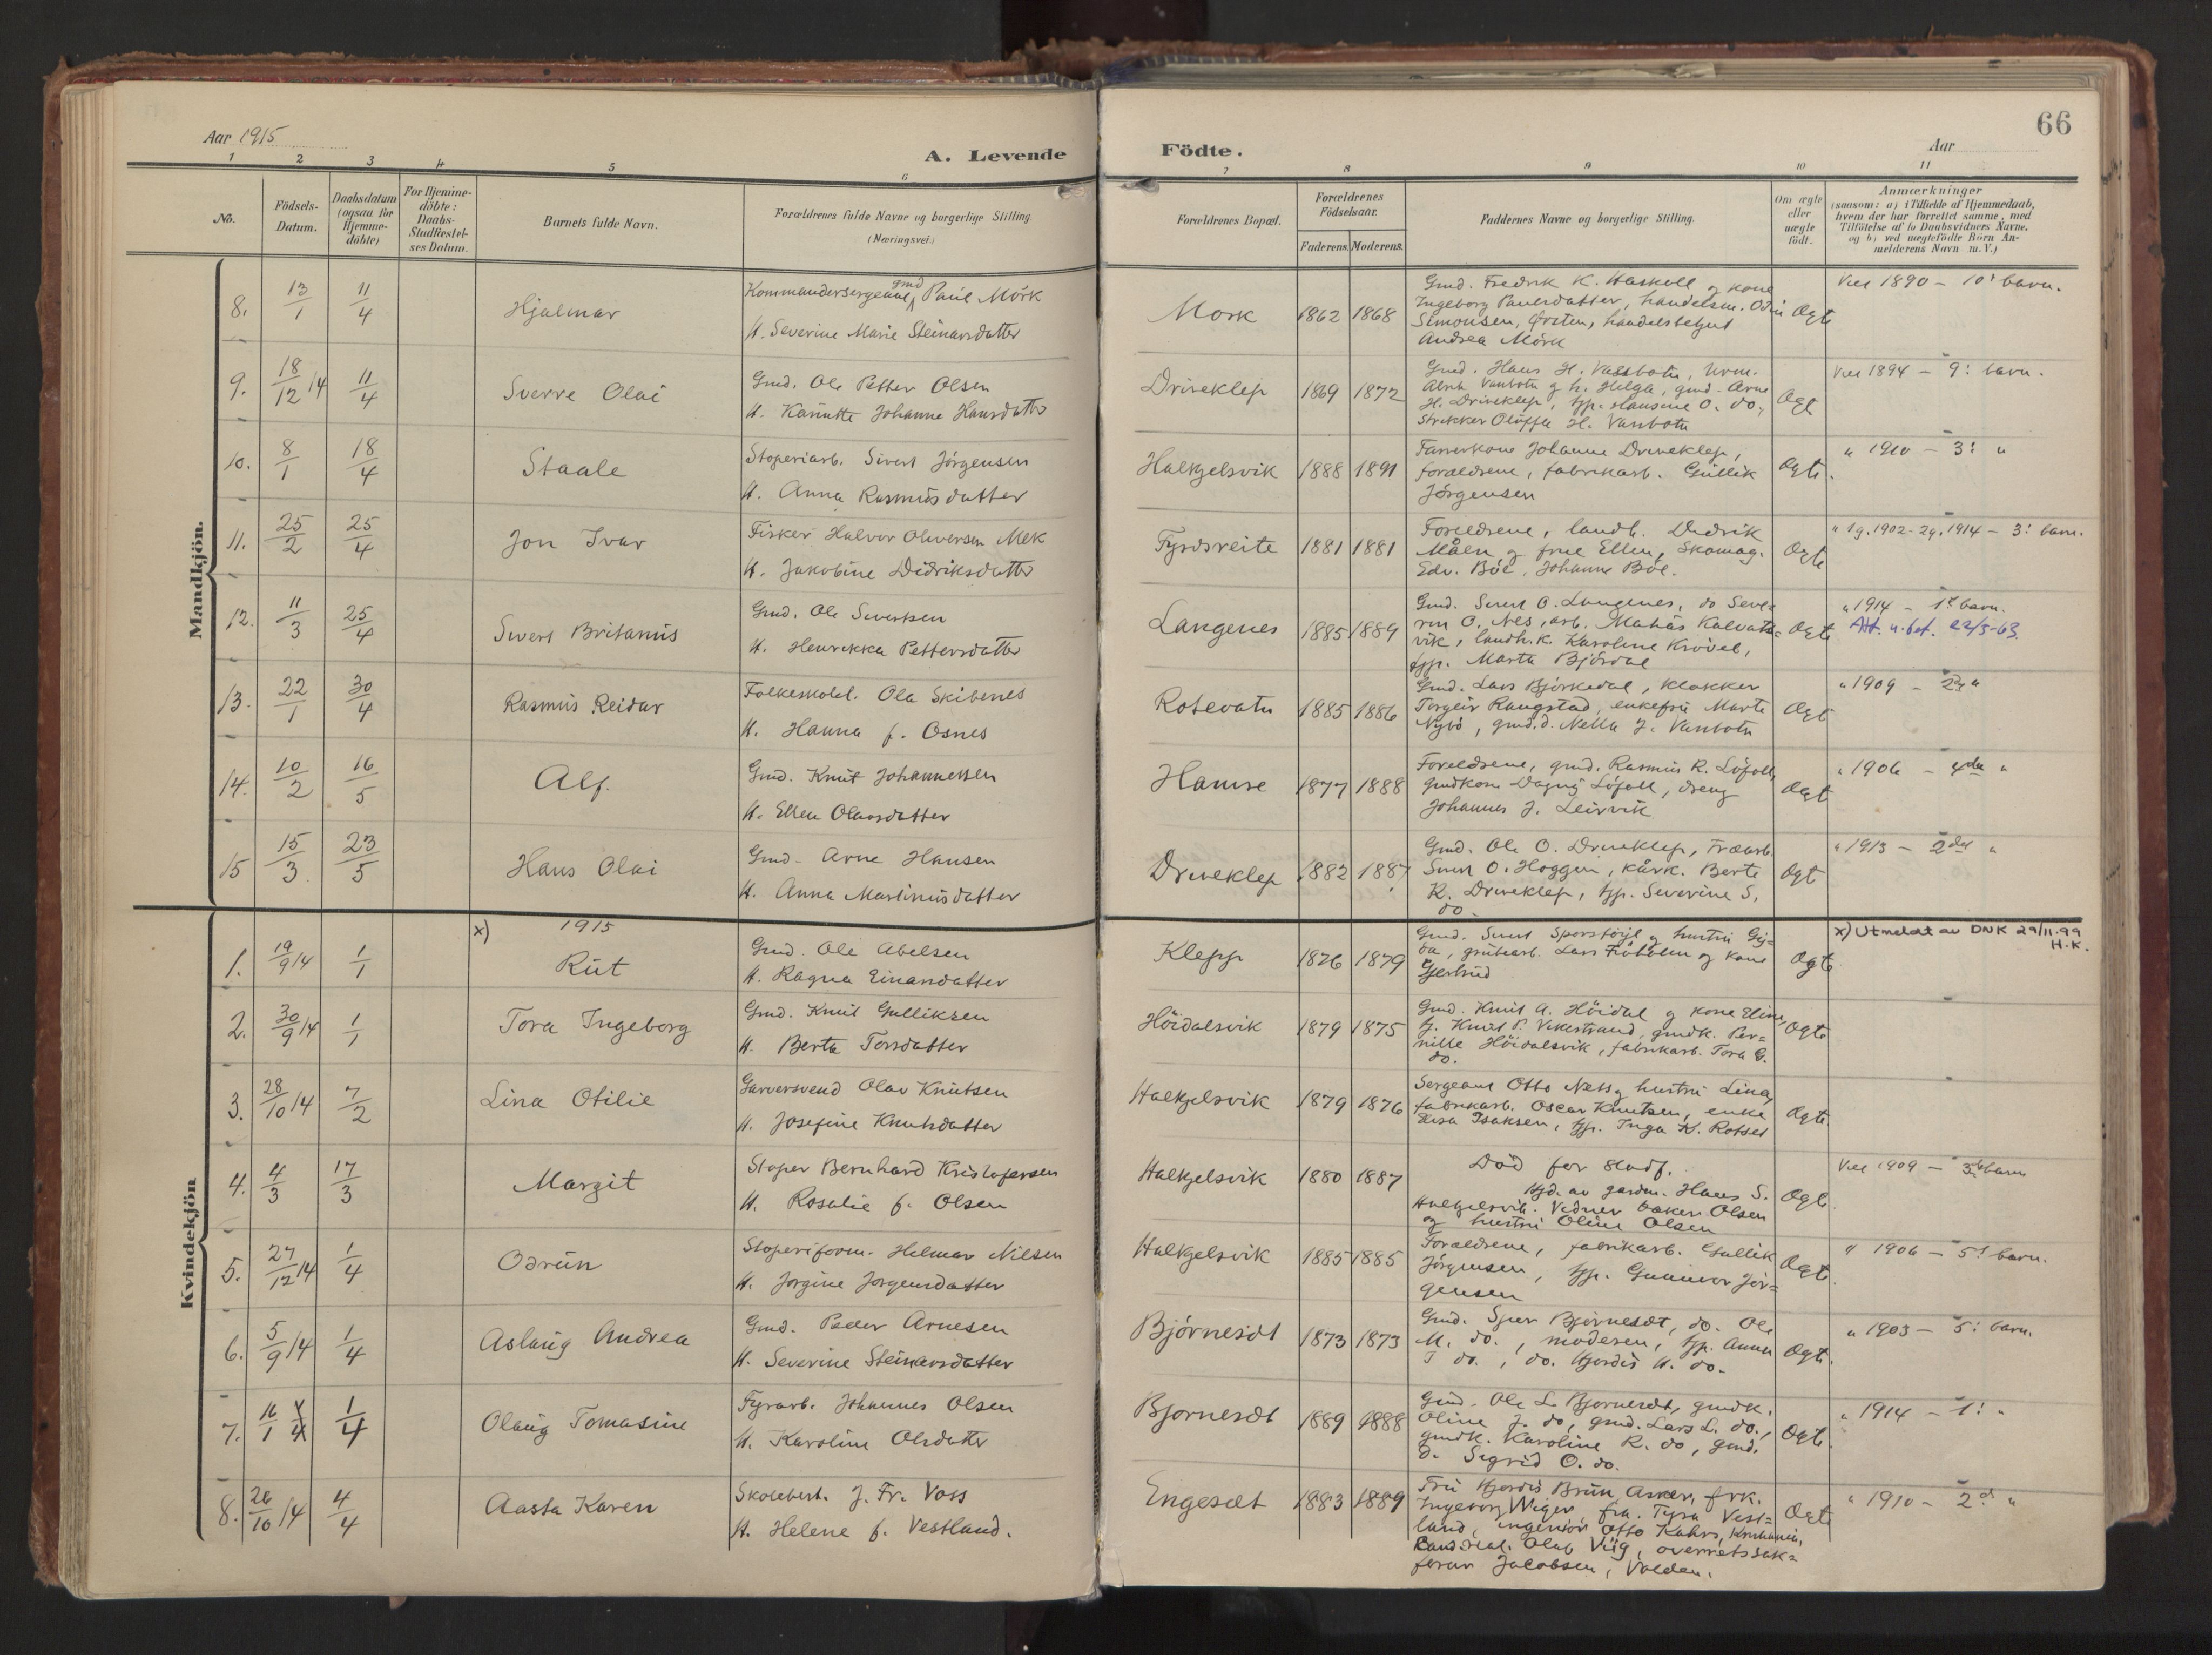 66
Aar 1915
Aar
A. Levende Födte.
1 2 3 4 5 6 7 8 9 10 11
No.
Födsels-
Datum.
Daabsdatum
(ogsaa for
Hjemme-
döbte)
For Hjemme-
döbte:
Daabs-
Stadfæstel-
ses Datum.
Barnets fulde Navn.
Forældrenes fulde Navne og borgerlige Stilling.
(Næringsvei.)
Forældrenes Bopæl.
Forældrenes
Födselsaar.
Faderens. Moderens.
Faddernes Navne og borgerlige Stilling.
Om ægte
eller
uægte
født.
Anmærkninger
(saasom: a) i Tilfælde af Hjemmedaab,
hvem der har forrettet samme, med
Tilføielse af to Daabsvidners Navne,
og b) ved uægtefödte Börn An-
melderens Navn m.V.)
Mandkjön.
8. 13/1 11/4 Hjalmar
Kommandersergeant, gmd Paul Mörk
H. Severine Marie Steinarsdatter
Mork 1862 1868
Gmd. Fredrik K. Haskoll og kone
Ingeborg Paulsdatter, handelsm. Odin
Simonsen, Örsten, handelsbetjent
Andrea Mörk
Ogte
Viet 1890 - 10' barn.
9. 18/12 14 11/4 Sverre Olai
Gmd. Ole Petter Olsen
H. Karintte Johanne Hansdatter
Driveklep 1869 1872
Gmd. Hans H. Vassbotn, Urm.
Vanbotn g h. Helga, gmd. Arne
H. Driveklep, tjp. Hansine O. do,
Strikker Oluffa H. Vanbotn
Ogt
Viet 1894 - 9: barn.
10. 8/1 18/4 Staale
Stoperiarb. Sivert Jörgensen
H. Anna Rasmusdatter
Halkjelsvik 1888 1891
Farverkone Johanne Driveklep,
forældrene, fabrikarb. Gullik
Jörgensen
Ogte.
" 1910 - 3: "
11. 25/2 25/4 Jon Ivar
Fisker Halvor Oluversen Mek
H. Jakobine Didriksdatter
Fyrdsreite 1881 1881
Forældrene, landh. Didrik
Måen g frue Ellen, Skomag.
Edv. Böe, Johanne Böe.
Ogte
" 1g. 1902 - 2g. 1914 - 3: barn.
12. 11/3 25/4 Sivert Britanus
Gmd. Ole Sivertsen
H. Henrikka Pettersdatter
Langenes 1885 1889
Gmd. Sivert O. Langenes, do Seve=
rin O. Nes, arb. Mathias Kalvats=
vik, landh.k. Karoline Krövel,
tjp. Marta Björdal
Ogte
" 1914 - 1t barn.
Att. u. bet. 22/5-63.
13. 22/1 30/4 Rasmus Reidar
Folkeskolel. Ola Skibenes
H. Hanna f. Osnes
Rotevatn 1885 1886
Gmd. Lars Björkedal, klokker
Torgeir Raugstad, enkefru Marte
Nybö, gmd.d. Nella J. Vanbotn
Ogt
" 1909 - 2d "
14. 10/2 16/5 Alf.
Gmd. Knut Johannessen
H. Ellen Olavsdatter
Hamre 1877 1888
Foreldrene, gmd. Rasmus R. Löfoll,
Gmdkone Dagny Löfoll, dreng
Johannes J. Leirvik
Ogt
" 1906 - 4de "
15 15/3 23/5 Hans Olai
Gmd. Arne Hansen
H. Anna Martinusdatter
Driveklep 1882 1887
Gmd. Ole O. Driveklep, Træarb.
Sivert O. Hoggen, kårk. Berte
R. Driveklep, tjp. Severine S.
do.
Ogt
" 1913 - 2det "
Kvindekjön
1915
x)
1. 19/9 14 1/1 Rut
Gmd. Ole Abelsen
H. Ragna Einarsdatter
Klepp 1876 1879
Gmd. Sivert Sporstöyl g hustru Gj=
da, grubearb. Lars Fröholm og kone
Gjertrud
Ogte
x) Utmeldt av DNK 29/11-99
H.K.
2. 30/9 14 1/1 Tora Ingeborg
Gmd. Knut Galliksen
H. Berta Torsdatter
Höidalsvik 1879 1875
Gmd. Knut A. Höidal g kone Eline,
tj. Knut P. Vikestrand, gmdk. Per=
nille Höidalsvik, fabrikarb. Tora G.
do.
Ogte
3. 28/10 14 7/2 Lina Otilie
Garversvend Olav Knutsen
H. Josefine Knutsdatter
Halkjelsvik 1879 1876
Sergeant Otto Nets g hustru Lina,
fabrikarb. Oscar Knutsen, enke
Lisa Isaksen, tjp. Inga K. Rotset
Ogte.
4. 4/3 17/3 Margit
Stoper Bernhard Kristofersen
H. Rosalie f. Olsen
Halkjelsvik 1880 1887
Död för stadf.
Hjd. av gardm. Hans S.
Halkjelsvik. Vidner baker Olsen
og hustru Oline Olsen
Ogte.
Viet 1909 - 3die barn
5. 27/12 14 1/4 Odrun
Stoperiform. Helmar Nilsen
H. Jorgine Jorgensdatter
Halkjelsvik 1885 1885
Foreldrene, fabrikarb. Gullik
Jörgensen, tjp. Gunnvor Jör=
gensen
Ogte.
" 1906 - 5t barn.
6. 5/9 14 1/4 Aslaug Andrea
Gmd. Peder Arnesen
H. Severine Steinarsdatter
Björnesdt 1873 1873
Gmd. Sjur Björnesdt, do. Ole
M. do., moderen, tjp. Anna
T do., do. Hjordis H. do.
Ogte.
" 1903 - 5: barn.
7. 16/1 1/4 Olaug Tomasine
Fyrarb. Johannes Olsen
H. Karoline Olsdatter
Bjornesdt 1889 1888
Gmd. Ole L. Bjornesdt, gmdk.
Oline J. do, gmd. Lars L. do.,
gmdk. Karoline R. do, gmd.
d. Sigrid O. do.
Ogte.
" 1914 - 1: "
8. 26/10 14 4/4 Aasta Karen
Skolebest. J. Fr. Voss
H. Helene f. Vestland.
Engesdt 1883 1889
Fru Hjordis Brun Aarer, frk.
Ingeborg Wiger, frk. Tyra Vest=
land, ingeniör Otto Kahrs, Kristiania,
Olaf Viig, overretssak=
förer Jacobsen, Volden.
Ogte
" 1910 - 2d "